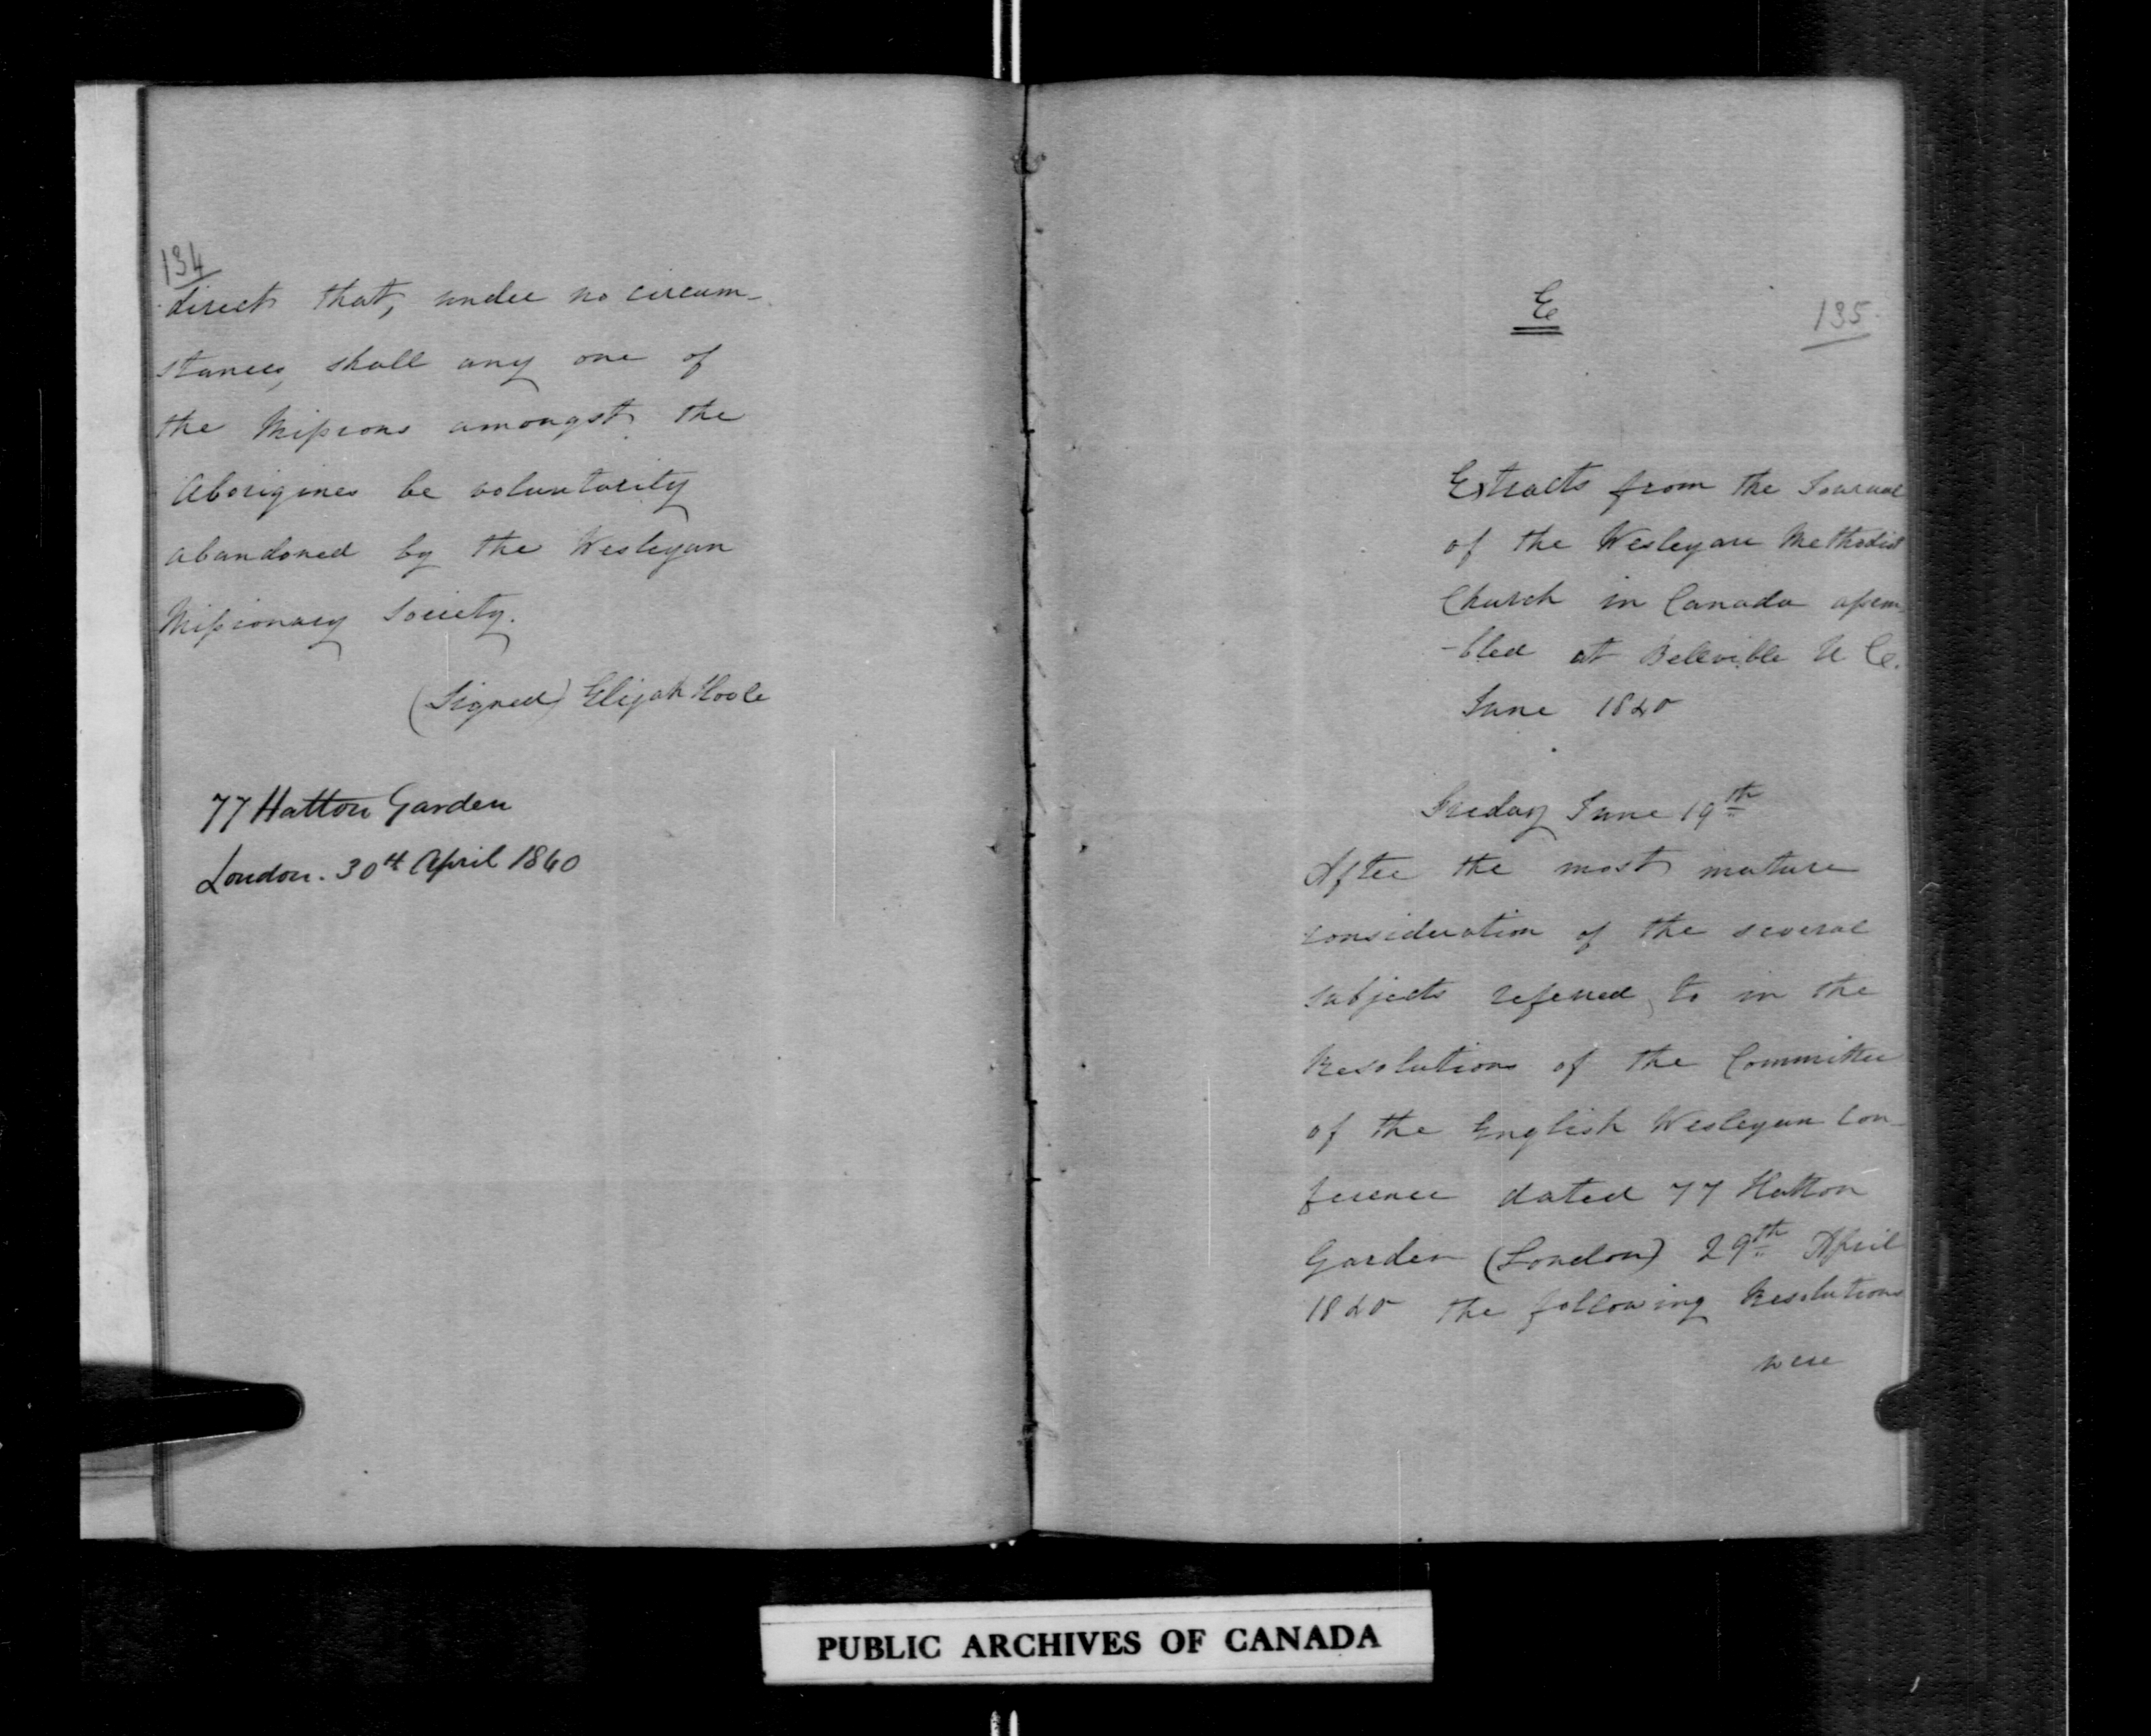 134
direct that, under no circum-
stances, shall any one of
the Missions amongst the
Aborigines be voluntarily
abandoned by the Wesleyan
Missionary Society.
(Signed) Elijah Hoole
77 Hatton Garden
London. 30th April 1840
E
135
Extracts from the Journal
of the Wesleyan Methodist
Church in Canada assem
-bled at Belleville U C.
June 1840
Friday June 19th
After the most mature
consideration of the several
subjects referred to in the
Resolutions of the Committee
of the English Wesleyan Con-
ference dated 77 Hatton
Garden (London) 29th April
1840 the following Resolutions
were
PUBLIC ARCHIVES OF CANADA